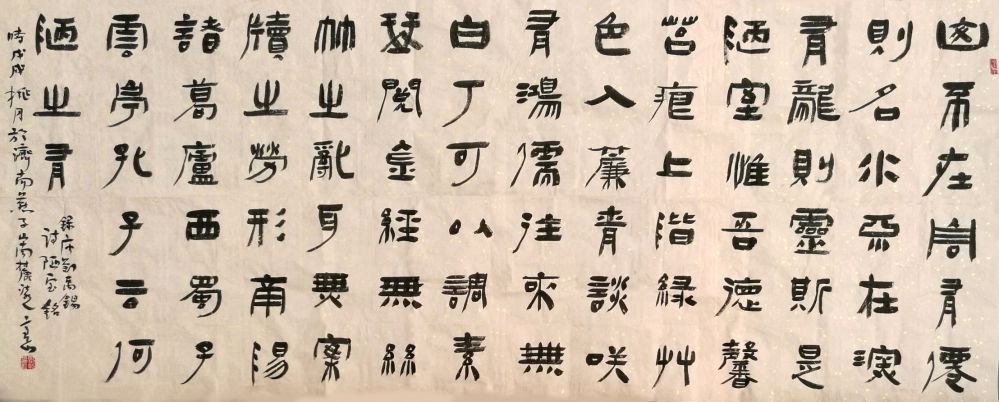 山不在高有僊
則名水不在深
有龍則靈斯是
陋室惟吾德馨
苔痕上階緑艸
色入簾青談咲
有鴻儒往來無
白丁可以調素
琴閱金經無絲
竹之亂耳無案
牘之勞形南陽
諸葛廬西蜀子
雲亭孔子云何
陋之有
錄唐劉禹錫
詩陋室銘
時戊戌桃月於濟南燕子山麓